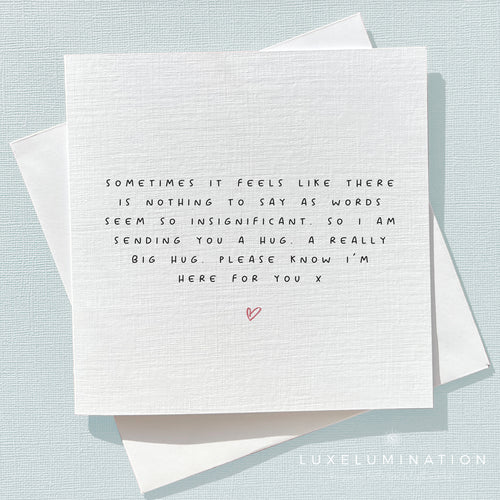 SOMETIMES IT FEELS LIKE THERE
IS NOTHING TO SAY AS WORDS
SEEM SO INSIGNIFICANT. SO I AM
SENDING YOU A HUG. A REALLY
BIG HUG. PLEASE KNOW I'M
HERE FOR YOU X
LUXELUMINATION